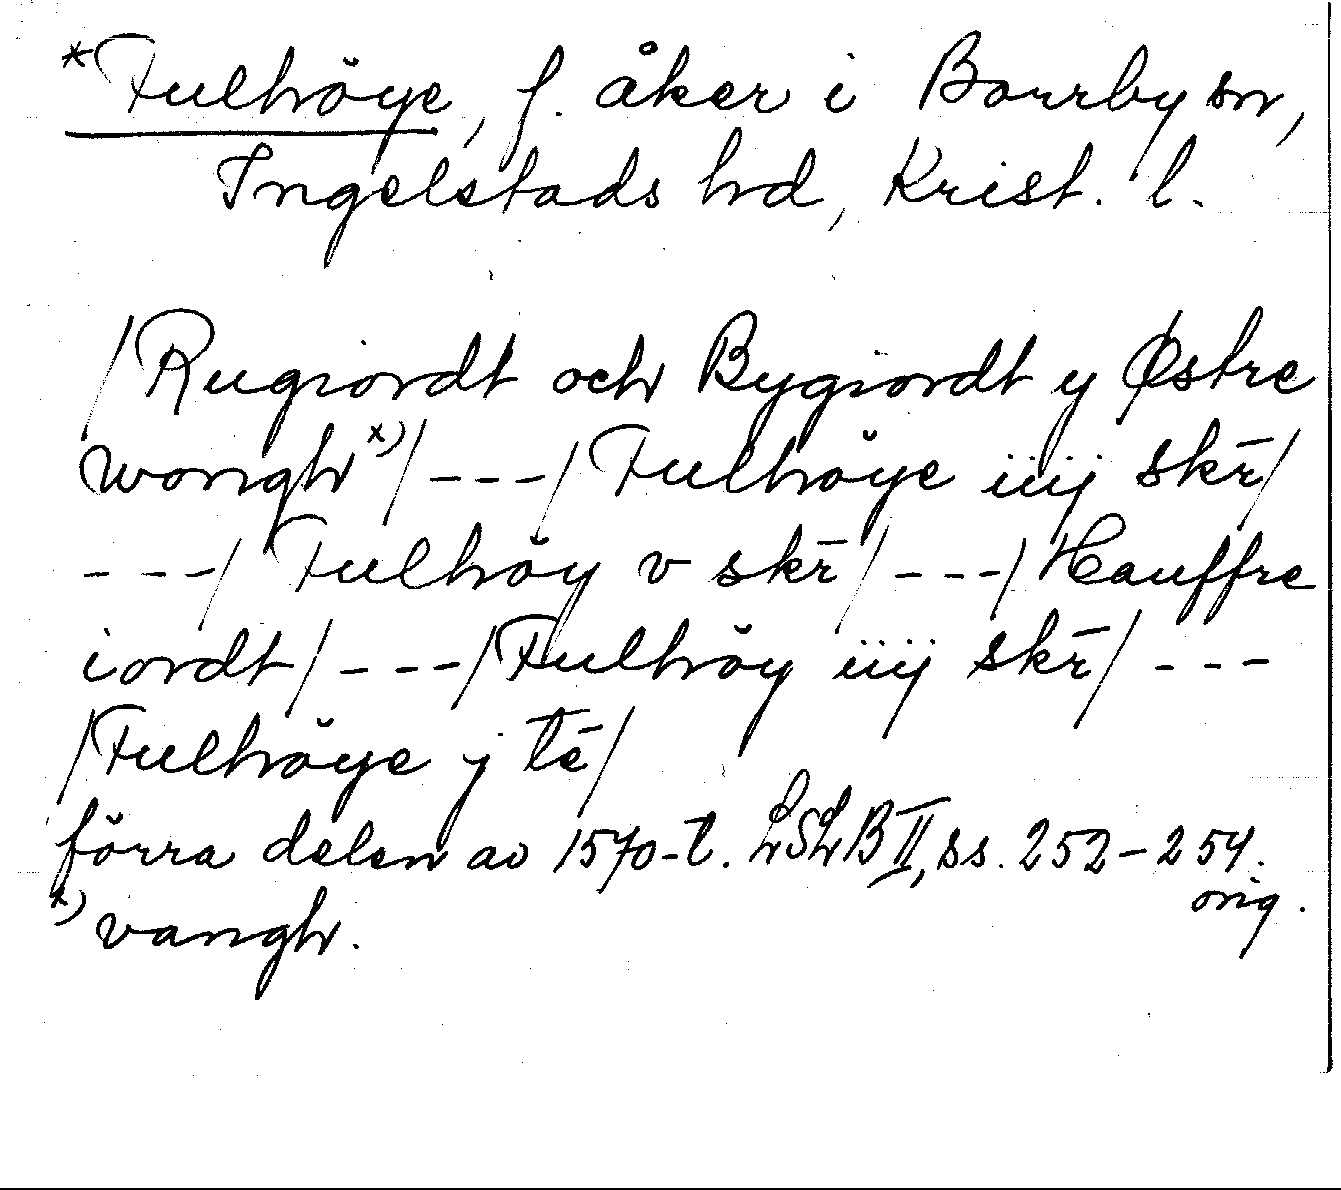 *Fulhöye, f. åker i Borrby sn,
Ingelstads hd, Krist. l.
/Rugiordt och Bygiordt y Østre
wongh x)/---/Fulhöye iiij skr̄/
---/Fulhöy v skr̄/---/Hauffre
iordt/---/Fulhöy iiij skr̄/---
/Fulhöye y tē/
förra delen av 1570-t. LSLB II, ss. 252-254.
orig.
x) vangh.